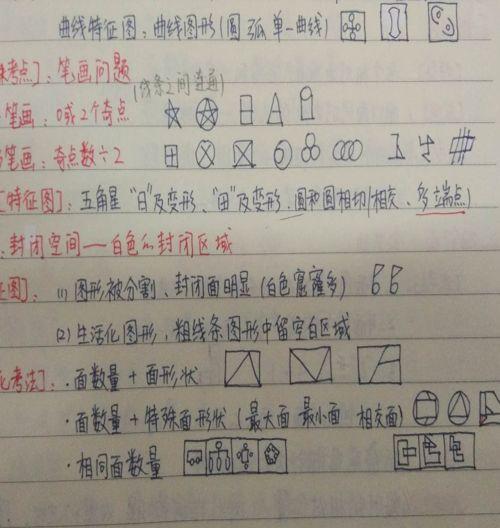 曲线特征图：曲线图形(圆 弧 单一曲线)
考点]：笔画问题 (线条之间连通)
笔画：0或2个奇点
笔画：奇点数÷2
[特征图]：五角星 "日"及变形、"田"及变形、圆和圆相切/相交、多端点)
封闭空间——白色的封闭区域
图]：(1)图形被分割、封闭面明显(白色窟窿多)
(2)生活化图形，粗线条图形中留空白区域
考法]：·面数量+面形状
·面数量+特殊面形状(最大面 最小面 相交面)
·相同面数量